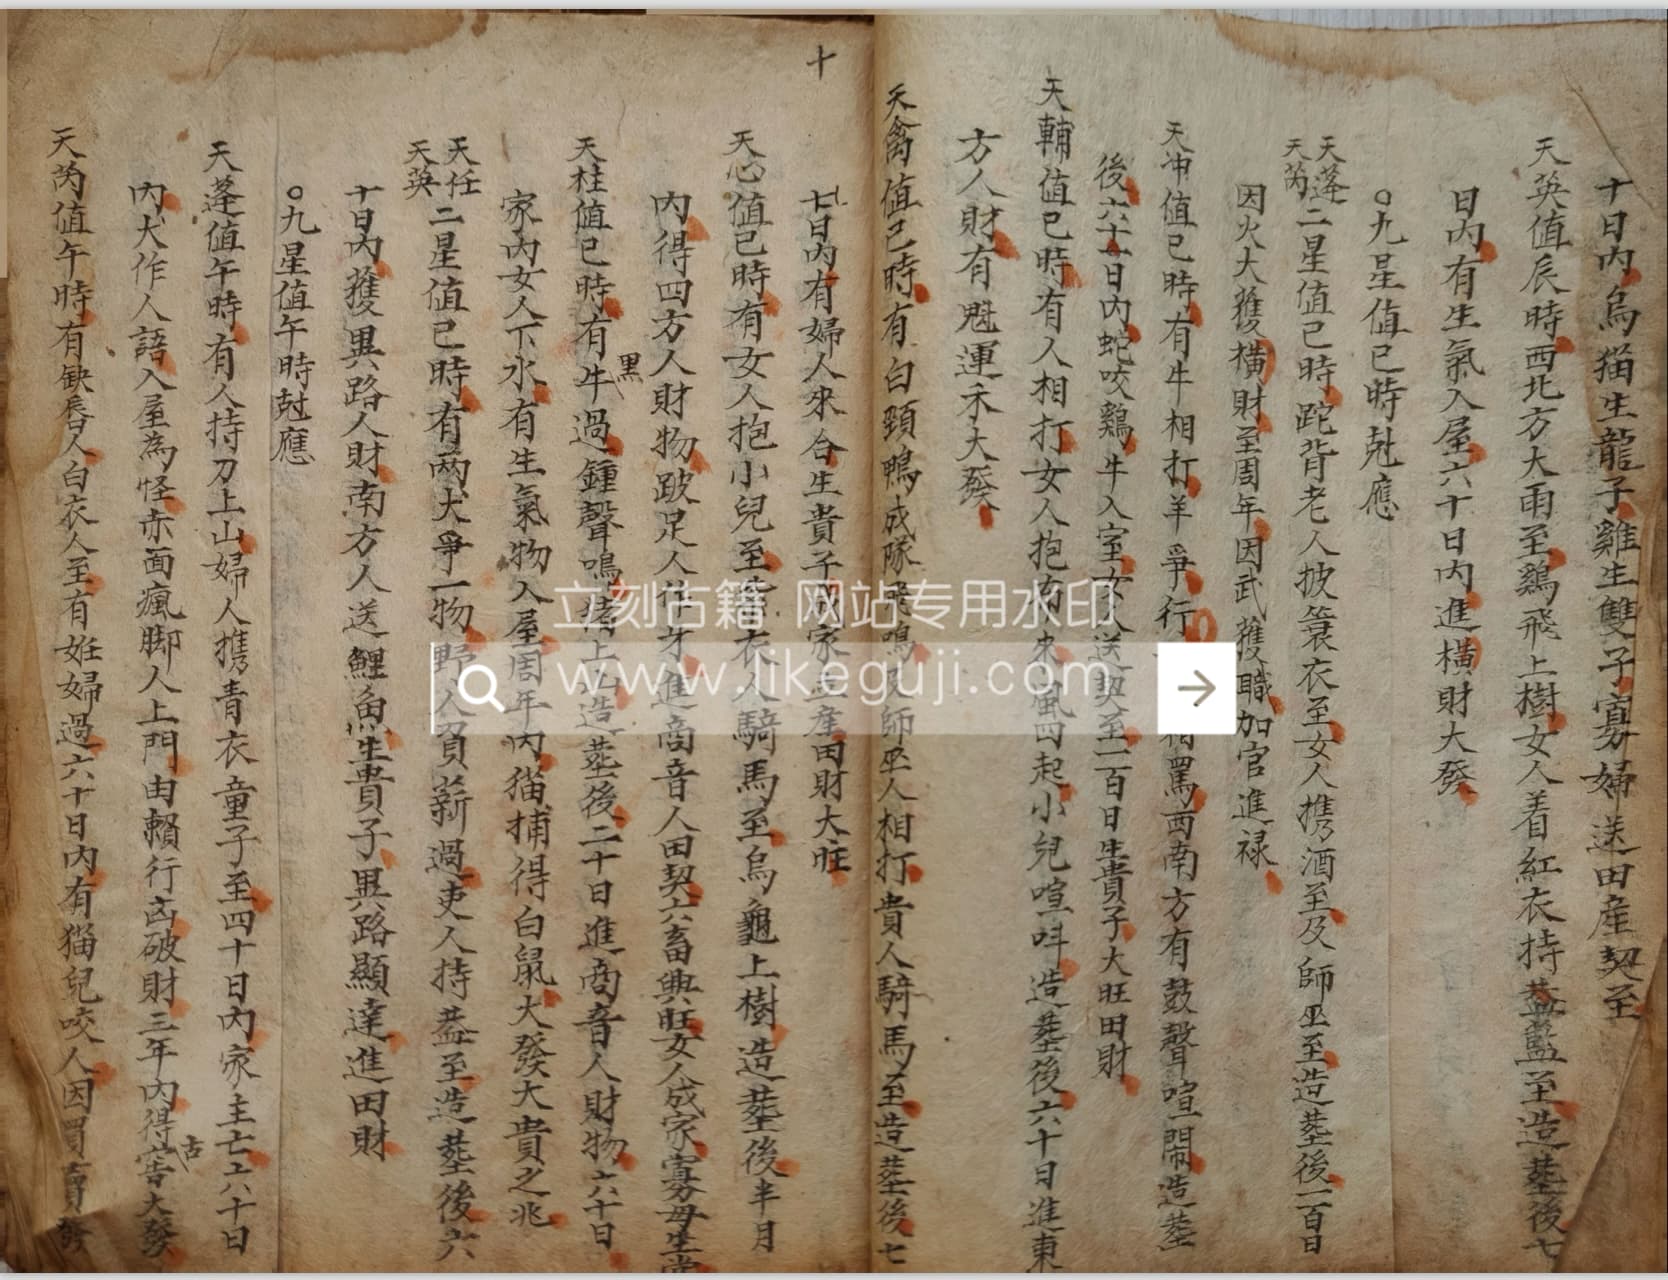 十日內烏猫生龍子雞生雙子寡婦送田産契至
天英值辰時西北方大雨至鷄飛上樹女人着紅衣持藍至造葬後七
日內有生氣入屋六十日內進橫財大發
○九星值巳時尅應
天蓬
天芮
二星值巳時跎背老人披簑衣至女人携酒至及師巫至造葬後一百日
因火大獲橫財至周年因武獲職加官進禄
天冲值巳時有牛相打羊爭行罵西南方有鼓聲喧鬧造葬
後六十日內蛇咬鷄牛入室女人送契至一百日生貴子大旺田財
天輔值巳時有人相打女人抱風四起小兒喧呌造葬後六十日進東
方人財有魁運禾大發
天禽值巳時有白頸鴨成隊飛鳴及師巫人相打貴人騎馬至造葬後七
十
七日內有婦人來合生貴子家産田財大旺
天心值巳時有女人抱小兒至衣人騎馬至烏龜上樹造葬後半月
內得四方人財物跛足人作牙進商音人田契六畜興旺女人成家寡母生
天柱值巳時有牛過鍾聲鳴猪上山造葬後二十日進商音人財物六十日
黑
家內女人下水有生氣物入屋周年內猫捕得白鼠大發大貴之兆
天任
天英
二星值巳時有兩犬爭一物野人負薪過吏人持蓋至造葬後六
十日內獲異路人財南方人送鯉魚生貴子異路顯達進田財
○九星值午時尅應
天蓬值午時有人持刀上山婦人携青衣童子至四十日內家主亡六十日
內犬作人語入屋為怪赤面瘋脚人上門由賴行凶破財三年內得窖大發
古
天芮值午時有缺唇人白衣人至有姙婦過六十日內有猫兒咬人因買賣發
立刻古籍 网站专用水印
www.likeguji.com